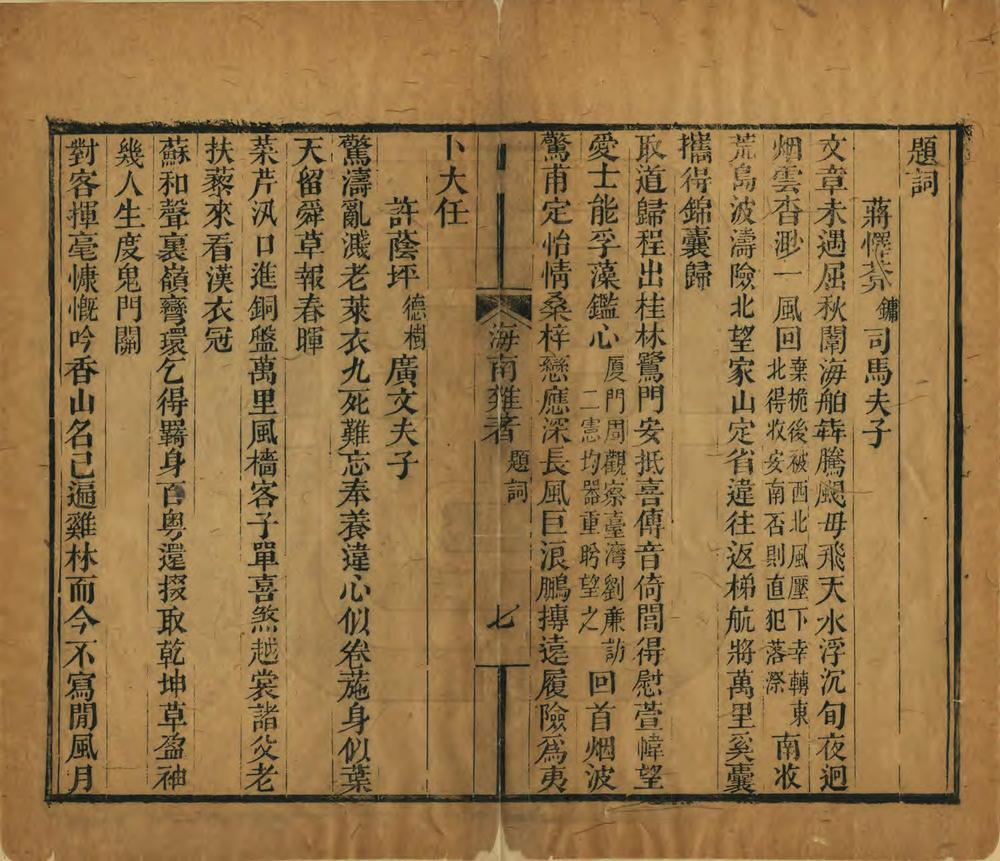 題詞
蔣懌葊鏞司馬夫子
文章未遇屈秋闈海舶犇騰颶毋飛天水浮沉旬夜迴
烟雲杳渺一風囘棄桅後被西北風壓下幸轉東北得收安南否則直犯落漈南收
荒島波濤險北望家山定省違往返梯航將萬里奚囊
攜得錦囊歸
取道歸程出桂林鷺門安抵喜傳音倚閭得慰萱幃望
愛士能孚藻鑑心厦門周觀察臺灣劉廉訪二憲均器重盻望之回首烟波
驚甫定怡情桑梓戀應深長風巨浪鵬摶遠履險爲夷
海南雜著 題詞 七
卜大任
許蔭坪德樹廣文夫子
驚濤亂濺老萊衣九死難忘奉養違心似卷葹身似葉
天留舜草報春暉
菜芹汎口進銅盤萬里風檣客子單喜煞越裳諸父老
扶藜來看漢衣冠
蘇和聲裏嶺彎環乞得羇身百粵還掇取乾坤草盈袖
幾人生度鬼門關
對客揮毫慷慨吟香山名已遍雞林而今不寫閒風月